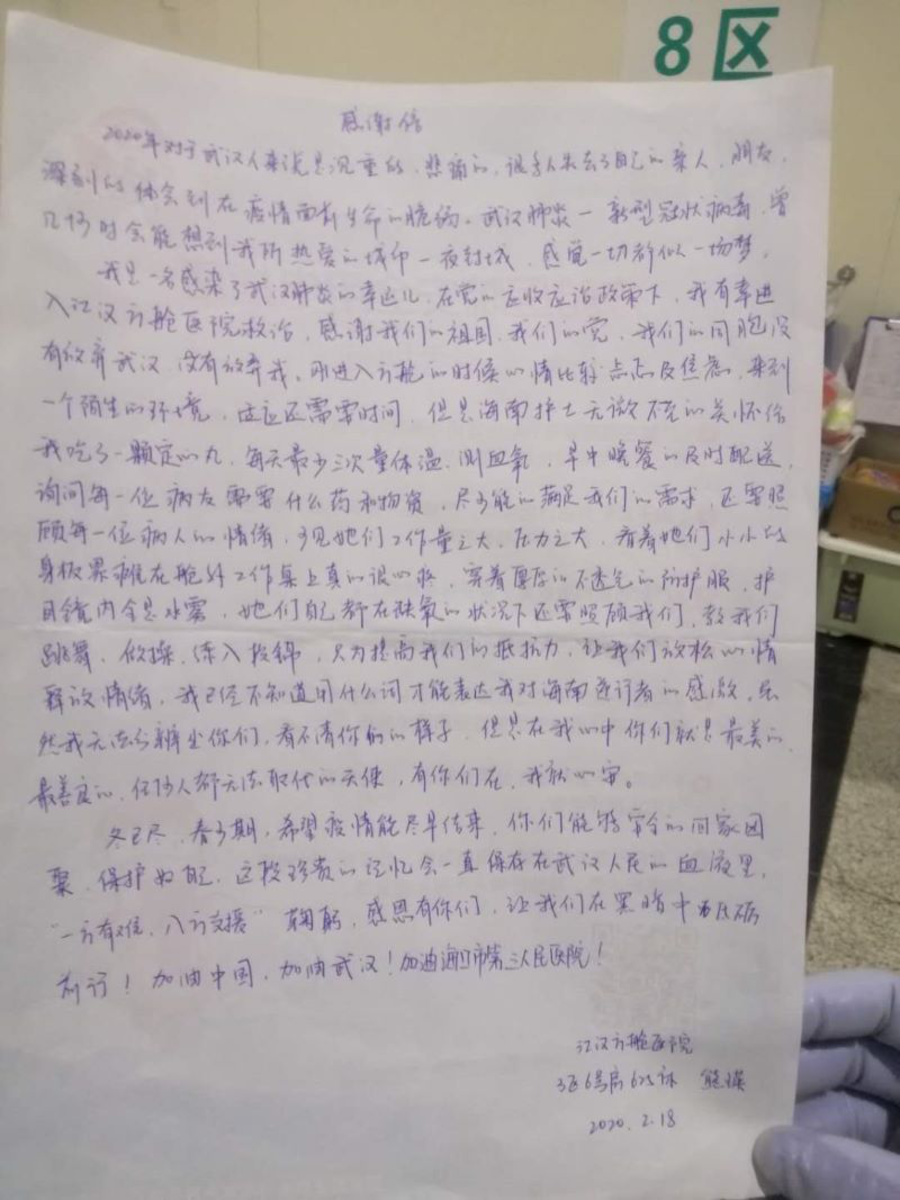 8区
感谢信
2020年对于武汉人来说是沉重的,悲痛的,很多人失去了自己的亲人,朋友,
深刻的体会到在疫情面前生命的脆弱。武汉肺炎一新型冠状病毒,曾
几何时会能想到我所热爱的城市一夜封城,感觉一切都似一场梦。
我是一名感染了武汉肺炎的幸运儿,在党的应收应治政策下,我有幸进
入江汉方舱医院救治,感谢我们的祖国,我们的党,我们的同胞没
有放弃武汉,没有放弃我。刚进入方舱的时候心情比较忐忑及焦虑,来到
一个陌生的环境,适应还需要时间,但是海南护士无微不至的关怀给
我吃了一颗定心丸,每天最少三次量体温,测血氧,早中晚餐的及时配送,
询问每一位病友需要什么药和物资,尽可能的满足我们的需求,还要照
顾每一位病人的情绪,可见她们工作量之大,压力之大,看着她们小小的
身板累瘫在舱外工作桌上真的很心疼,穿着厚厚的不透气的防护服,护
目镜内全是水雾,她们自己都在缺氧的状况下还要照顾我们,教我们
跳舞,做操,练八段锦,只为提高我们的抵抗力,让我们放松心情
释放情绪,我已经不知道用什么词才能表达我对海南逆行者的感激,虽
然我无法分辨出你们,看不清你们的样子,但是在我心中你们就是最美的,
最善良的,任何人都无法取代的天使,有你们在,我就心安。
冬已尽,春可期,希望疫情能尽早结束,你们能够安全的回家团
聚,保护好自己,这段珍贵的记忆会一直保存在武汉人民的血液里,
"一方有难,八方支援"鞠躬,感恩有你们,让我们在黑暗中砥砺
前行!加油中国,加油武汉!加油海口市第三人民医院!
江汉方舱医院
3区6号房625床 熊瑛
2020.2.18